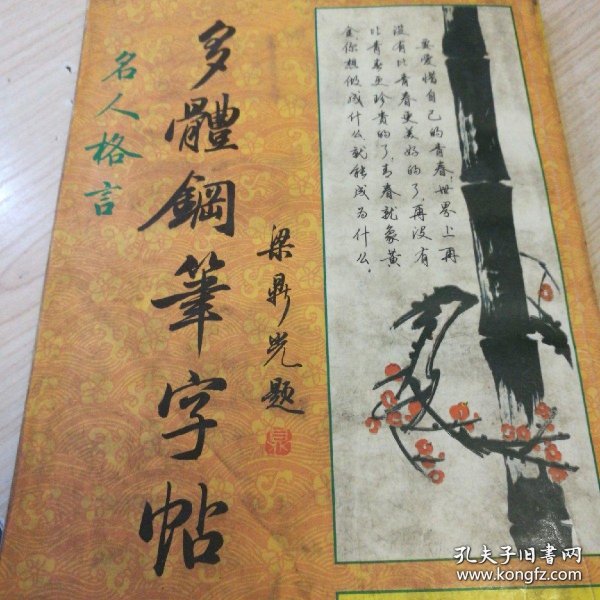 名人格言
多體鋼筆字帖
梁鼎光题
要爱惜自己的青春，世界上再
没有比青春更美好的了，再没有
比青春更珍贵的了，青春就象黄
金，你想做成什么，就能成为什么。
孔夫子旧书网
www.kongfz.com